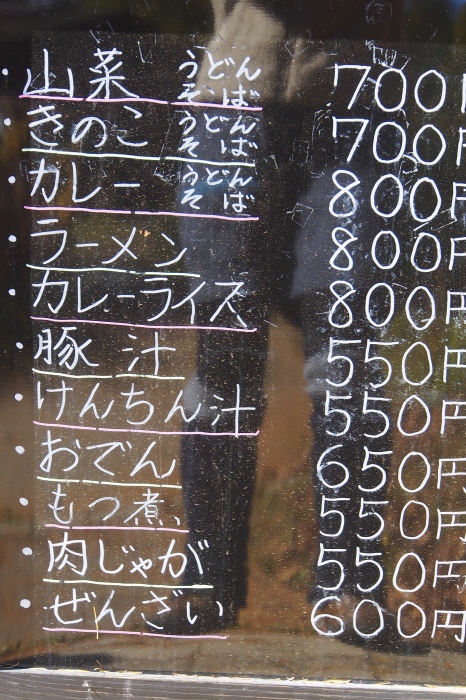 ・山菜 うどん そば 700円
・きのこ うどん そば 700円
・カレー うどん そば 800円
・ラーメン 800円
・カレーライス 800円
・豚汁 550円
・けんちん汁 550円
・おでん 650円
・もつ煮 550円
・肉じゃが 550円
・ぜんざい 600円